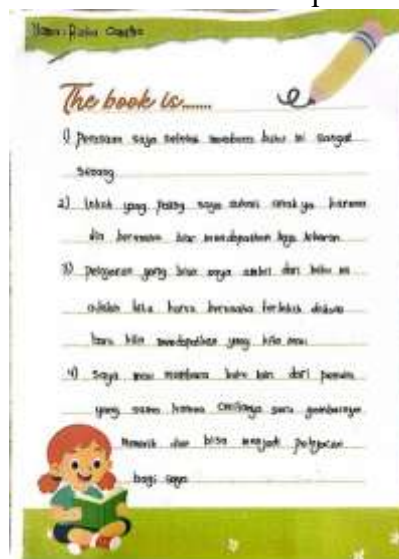 Nama : Riska
The book is......
1) Perasaan saya setelah membaca buku ini sangat
senang
2) tokoh yang paling saya sukai karena
dia berusaha biar mendapatkan baju lebaran
3) pelajaran yang bisa saya ambil dari buku ini
adalah kita harus berusaha terlebih dahulu
baru kita mendapatkan yang kita mau
4) saya mau membaca buku lain dari penulis
yang sama karena ceritanya seru gambarnya
menarik dan bisa menjadi pelajaran
bagi saya